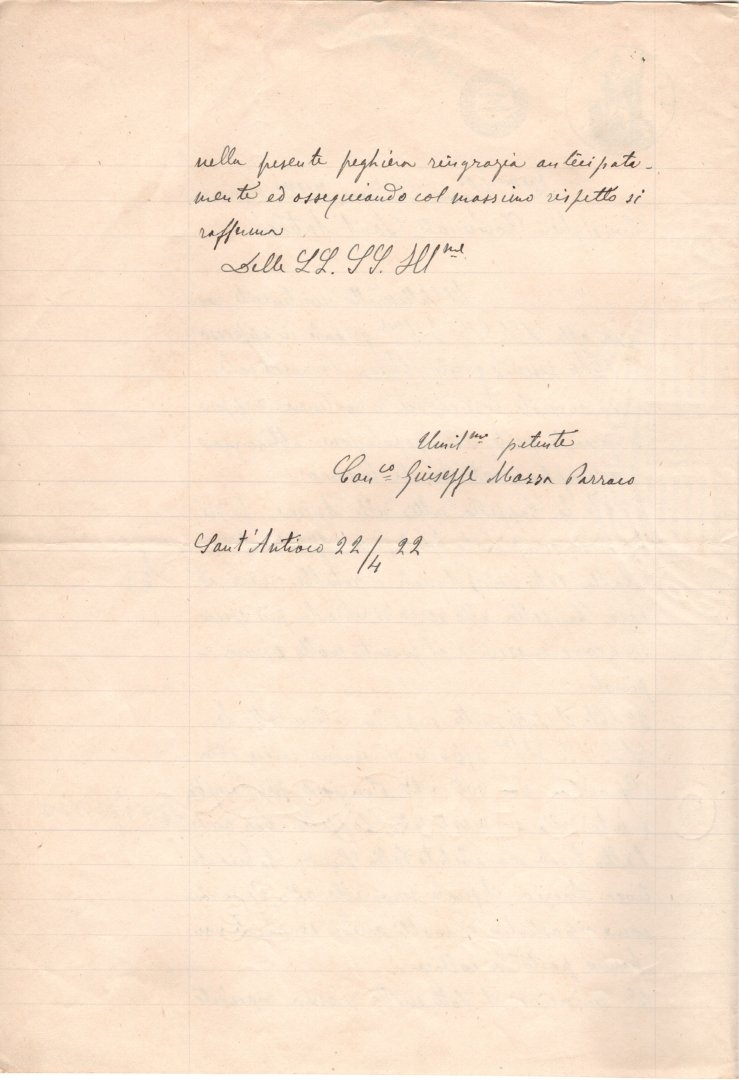 nella presente preghiera ringrazia antecipata-
mente ed ossequiando col massimo rispetto si
rafferma
Delle LL. SS. Ill.me
Umil.mo petente
Can.co Giuseppe Mazza Parroco
Sant'Antioco 22/4 22